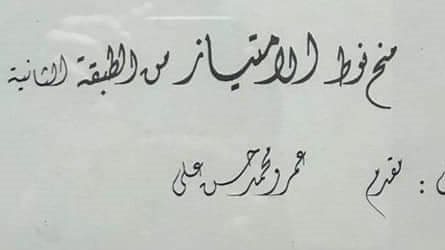 منح نوط الامتياز من الطبقة الثانية
: مقدم عمرو محمد حسن على